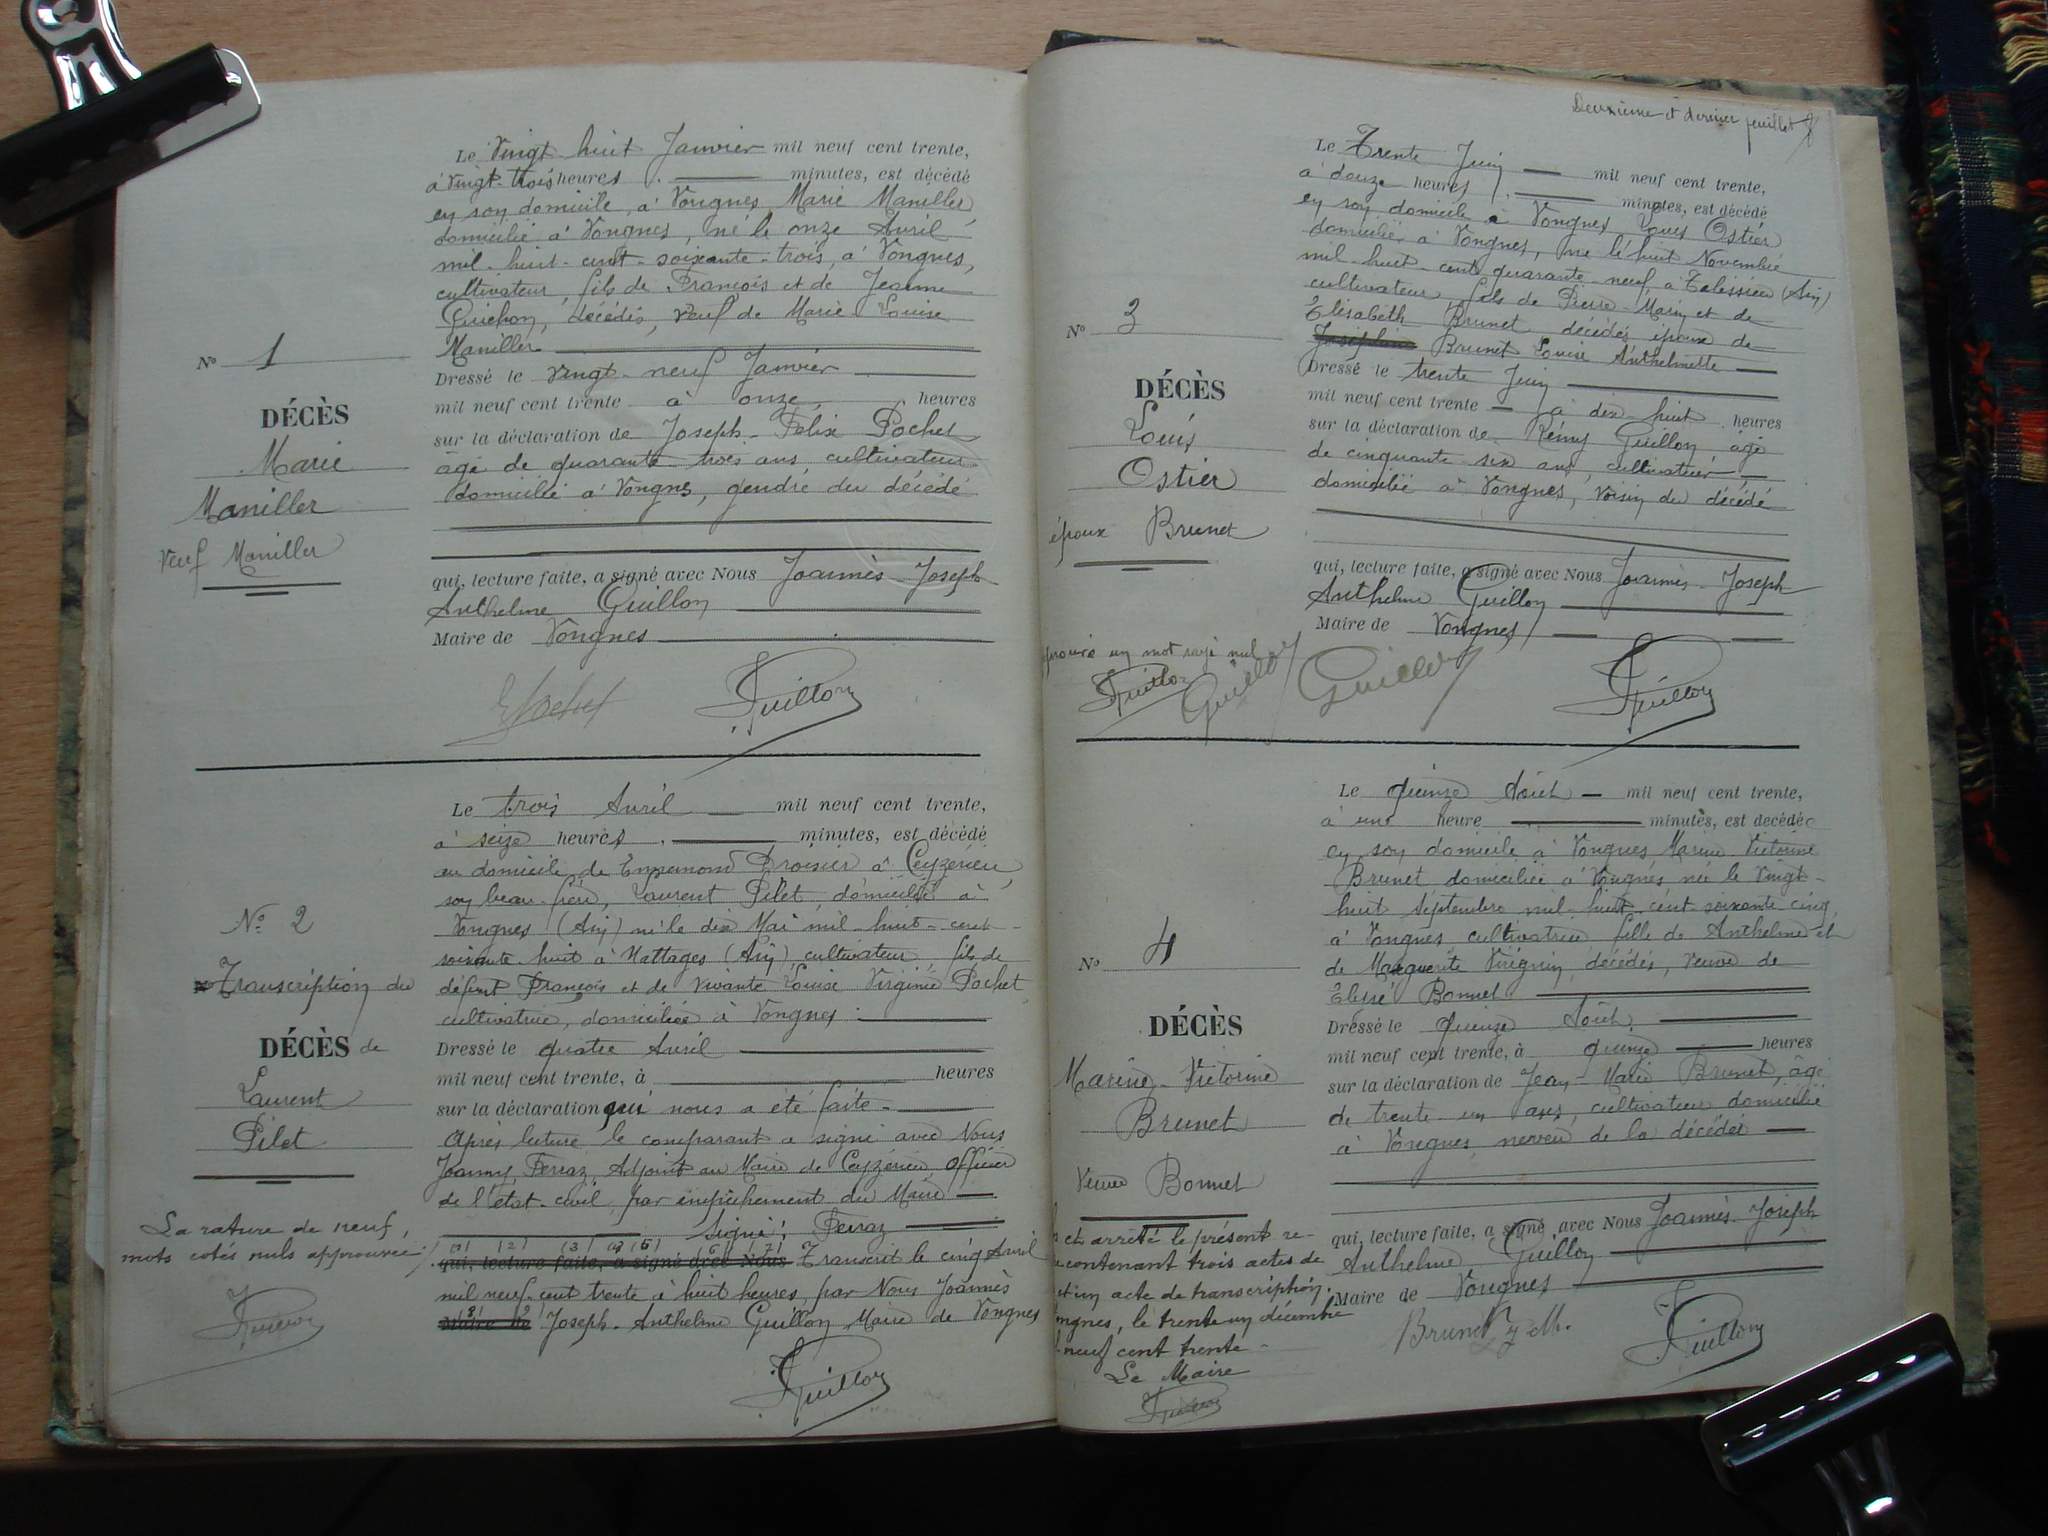 Le Vingt-huit Janvier mil neuf cent trente,
à Vingt-trois heures minutes, est décédé
en son domicile, à Vongnes Marie Maniller
domicilié à Vongnes, né le onze Avril
mil-huit-cent-soixante-trois, à Vongnes,
cultivateur, fils de François et de Jeanne
Guichon, décédés, Veuf de Marie-Louise
Maniller
Dressé le Vingt-neuf Janvier
mil neuf cent trente à onze heures
sur la déclaration de Joseph-Félix Pochet
âgé de quarante-trois ans, cultivateur
domicilié à Vongnes, gendre du décédé
qui, lecture faite, a signé avec Nous Joannès-Joseph
Anthelme Guillon
Maire de Vongnes
Nº 1
DÉCÈS
Marie
Maniller
Veuf Maniller
Pochet
Guillon
Le trois Avril mil neuf cent trente,
à seize heures minutes, est décédé
au domicile de Droisier à Ceyzérieu,
son beau-frère, Laurent Pilet, domicilié à
Vongnes (Ain) né le dix Mai mil-huit-cent-
soixante huit à Nattages (Ain), cultivateur, fils de
défunt François et de vivante Louise Virginie Pochet,
cultivatrice, domiciliée à Vongnes.
Dressé le quatre Avril
mil neuf cent trente, à heures
sur la déclaration qui nous a été faite.
Après lecture le comparant a signé avec Nous
Joanny Ferraz, Adjoint au Maire de Ceyzérieu, Officier
de l'état-civil, par empêchement du Maire
Signé: Ferraz
qui, lecture faite, a signé avec Nous Transcrit le cinq Avril
mil neuf-cent trente à huit heures, par Nous Joannès
Maire de Joseph-Anthelme Guillon Maire de Vongnes
Nº 2
Transcription du
DÉCÈS de
Laurent
Pilet
La rature de neuf
mots cotés nuls approuvée
Guillon
Guillon
Deuxième et dernier feuillet
Le Trente Juin mil neuf cent trente,
à douze heures minutes, est décédé
en son domicile à Vongnes Louis Ostier
domicilié à Vongnes, né le huit Novembre
mil-huit-cent quarante-neuf, à Talissieu (Ain)
cultivateur, fils de Pierre-Marin et de
Elisabeth Brunet, décédés, époux de
Joséphine Brunet Louise Anthelmette
Dressé le trente Juin
mil neuf cent trente à dix-huit heures
sur la déclaration de Rémy Guillon, âgé
de cinquante-six ans, cultivateur
domicilié à Vongnes, voisin du décédé
qui, lecture faite, a signé avec Nous Joannès-Joseph
Anthelme Guillon
Maire de Vongnes
Nº 3
DÉCÈS
Louis
Ostier
époux Brunet
un mot rayé nul
Guillon Guillon Guillon Guillon
Le quinze Août mil neuf cent trente,
à une heure minutes, est décédée
en son domicile à Vongnes Marine Victorine
Brunet domiciliée à Vongnes née le Vingt-
huit Septembre mil-huit-cent-soixante-cinq,
à Vongnes, cultivatrice, fille de Anthelme et
de Marguerite Virignin, décédés, veuve de
Elysé Bonnet
Dressé le quinze Août
mil neuf cent trente, à quinze heures
sur la déclaration de Jean-Marie Brunet, âgé
de trente-un ans, cultivateur domicilié
à Vongnes, neveu de la décédée
qui, lecture faite, a signé avec Nous Joannès-Joseph
Anthelme Guillon
Maire de Vongnes
Nº 4
DÉCÈS
Marine-Victorine
Brunet
Veuve Bonnet
et arrêté le présent re-
contenant trois actes de
et un acte de transcription.
ongnes, le trente un décembre
neuf cent trente
Le Maire
Guillon
Brunet J M.
Guillon